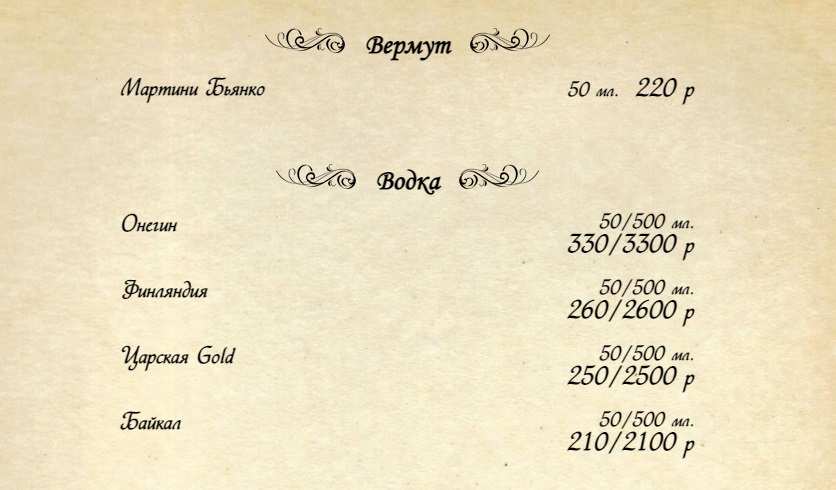 Вермут
Мартини Бьянко 50 мл. 220 р
Водка
Онегин 50/500 мл.
330/3300 р
Финляндия 50/500 мл.
260/2600 р
Царская Gold 50/500 мл.
250/2500 р
Байкал 50/500 мл.
210/2100 р